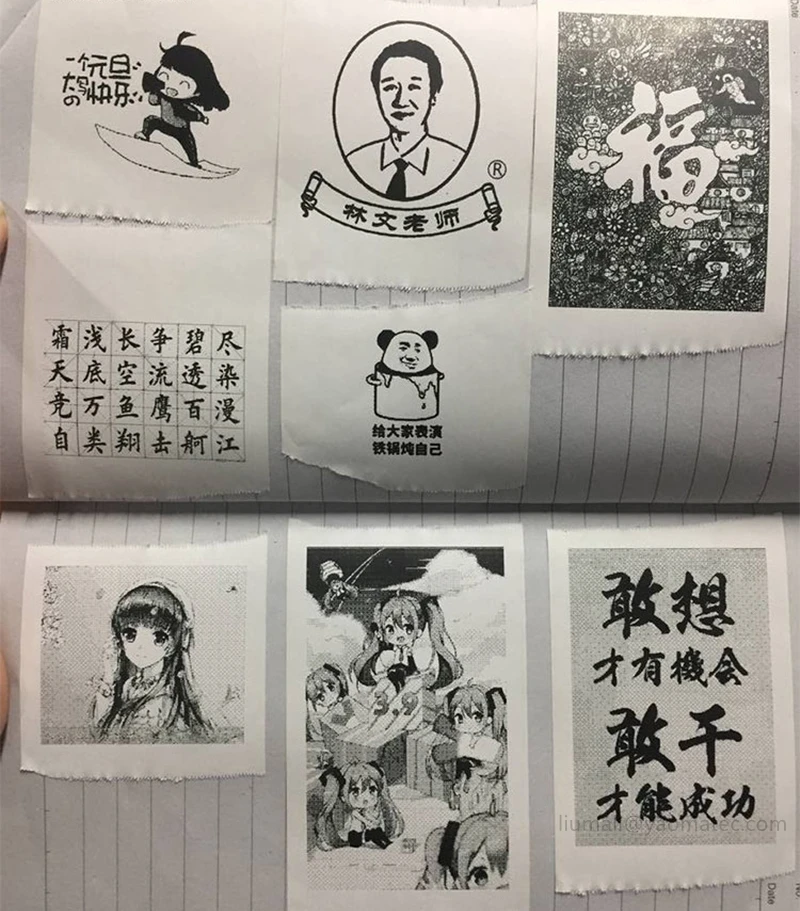 一个元旦
大写快乐
の
®
林文老师
福
霜浅长争碧尽
天底空流透染
竞万鱼鹰百漫
自类翔击舸江
给大家表演
铁锅炖自己
3.9
敢想
才有機会
敢干
才能成功
liumail@yaomatec.com
Date
No.
Date